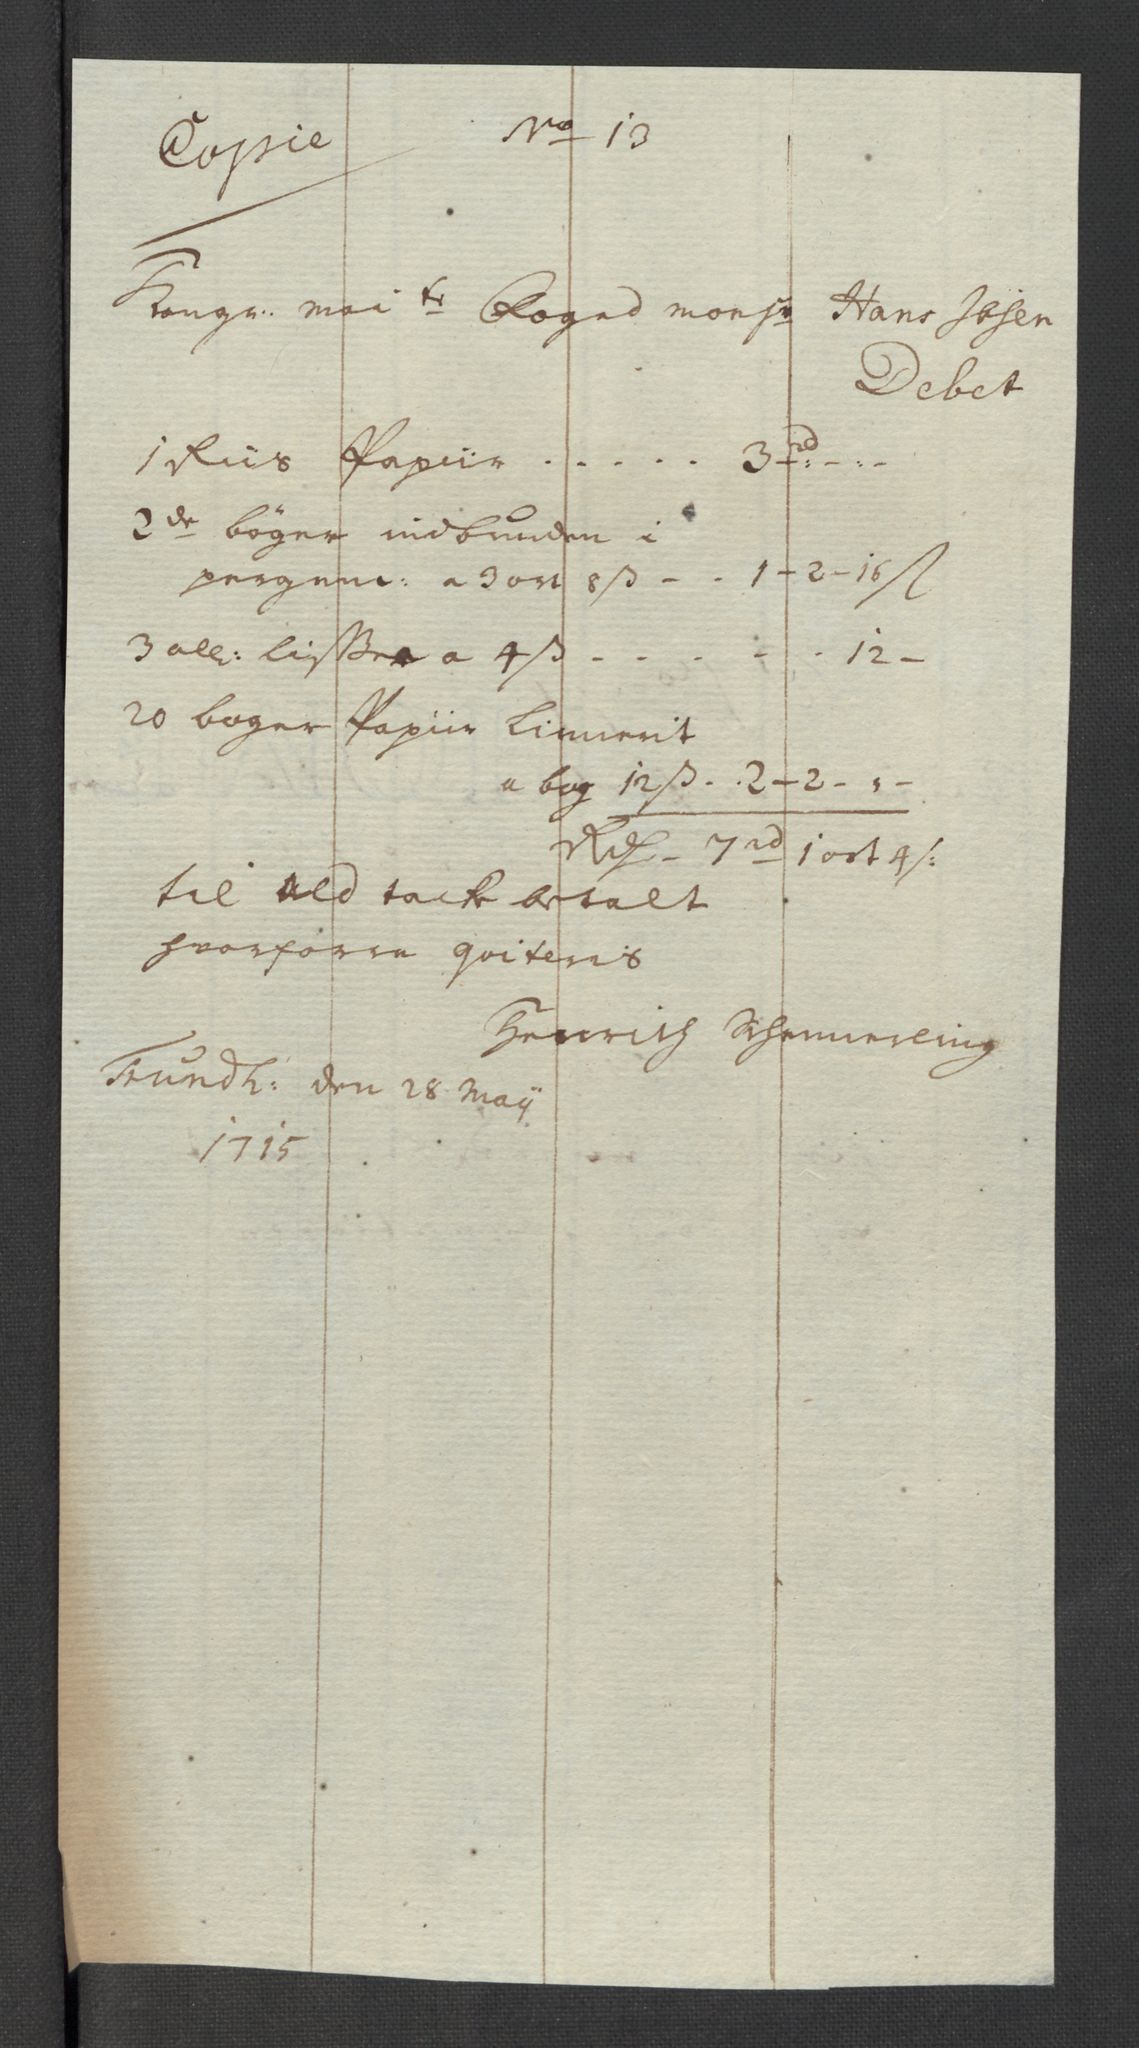 Copie No 13
Kongr: mai ts Fogd monsr Hans Ibsen
Debet
1 Riis Papiir - - - - - 3 rd - : - : -
2de böger indbunden i
pergem: a 3 ort 8 ß - - 1 - 2 - 16 ß
3 all: lisser a 4 ß - - - - - 12 -
20 boger Papiir linnerit
a bog 12 ß - - 2 - 2 - " -
Rdr - 7 rd 1 ort 4 ß:
til ald tack betalt
hvorforre qviteris
Henrich Schemerling
Trundh: den 28 Maij
1715